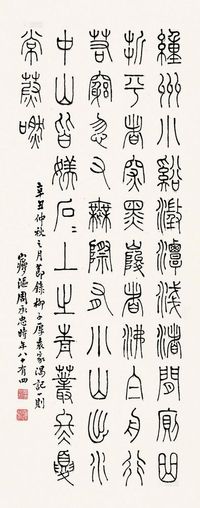 緟州小谿澂潭淺渚間廁曲
折平者深黑峻者沸白舟行
若窮忽又無際有小山出水
中山皆媄石=上生青叢冬夏
常蔚嘫
辛丑仲秋之月節錄柳子厚袁家渴記一則
漚周承忠時年八十有四